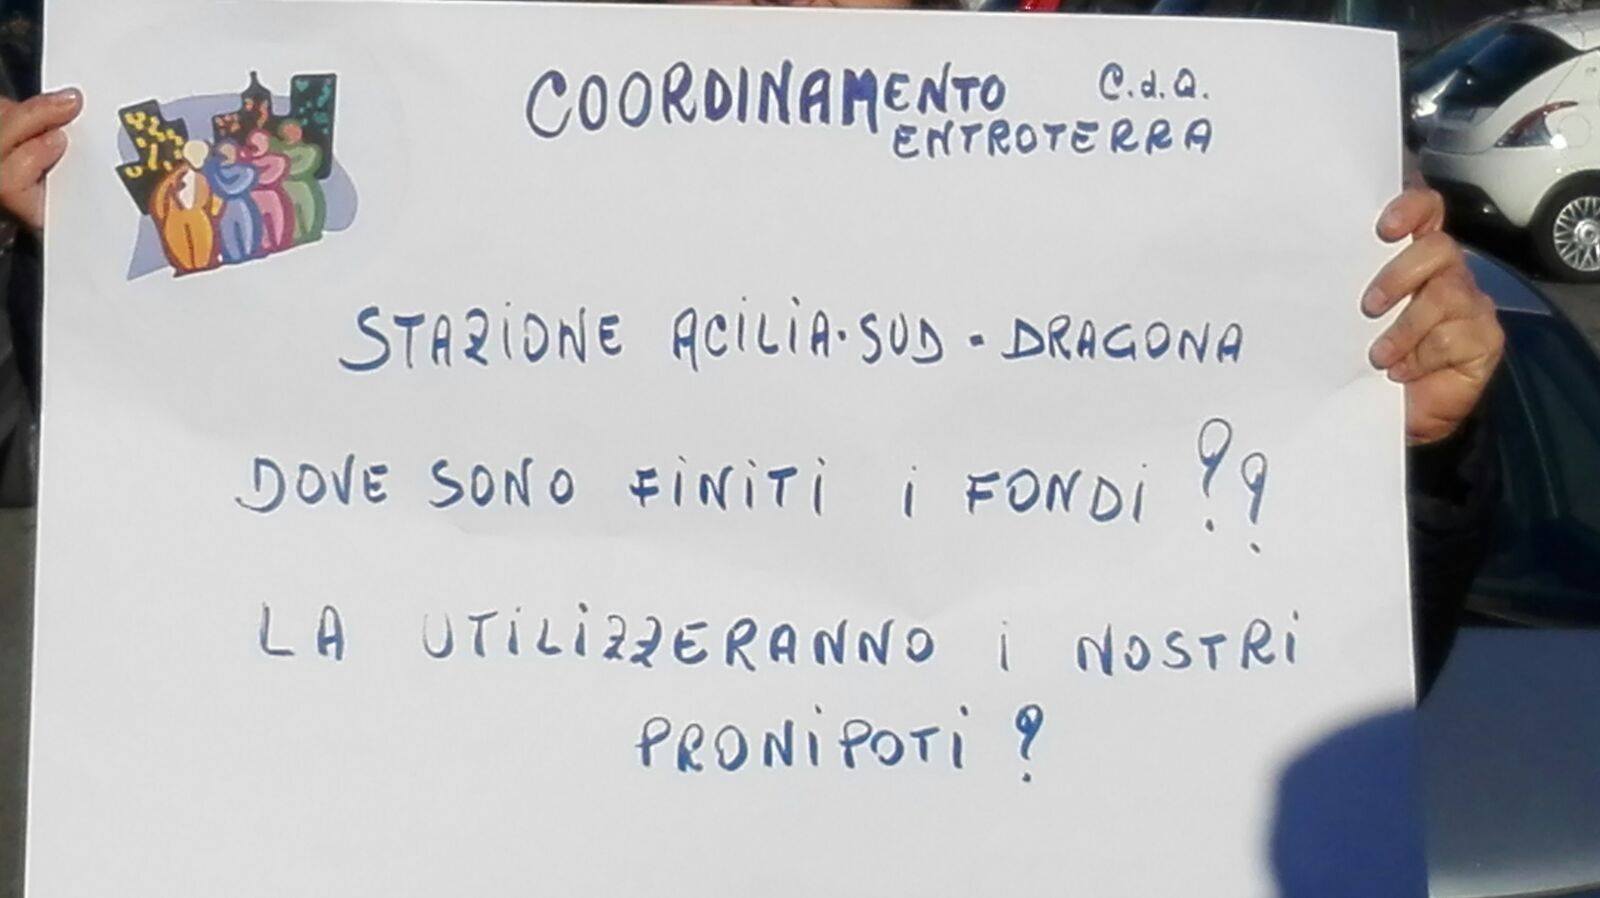 COORDINAMENTO C.d.Q.
ENTROTERRA
STAZIONE ACILIA-SUD-DRAGONA
DOVE SONO FINITI I FONDI??
LA UTILIZZERANNO I NOSTRI
PRONIPOTI?